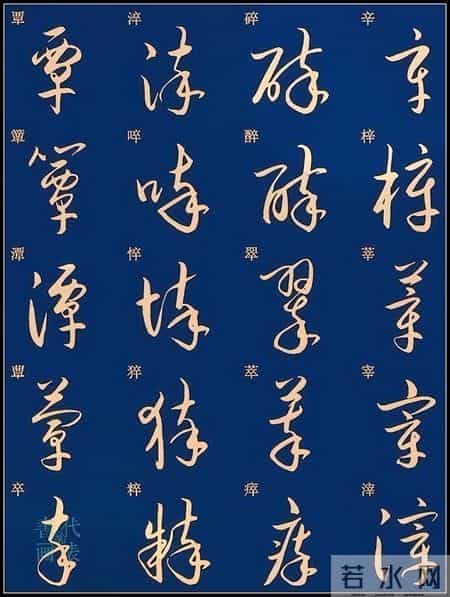 覃 覃
簟 簟
潭 潭
蕈 蕈
卒 卒
淬 淬
啐 啐
悴 悴
猝 猝
粹 粹
碎 碎
醉 醉
翠 翠
萃 萃
瘁 瘁
辛 辛
梓 梓
莘 莘
宰 宰
滓 滓
若水网